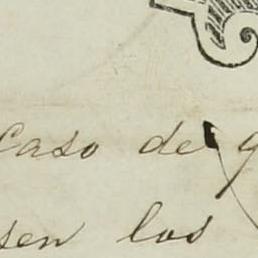 caso de
sen los